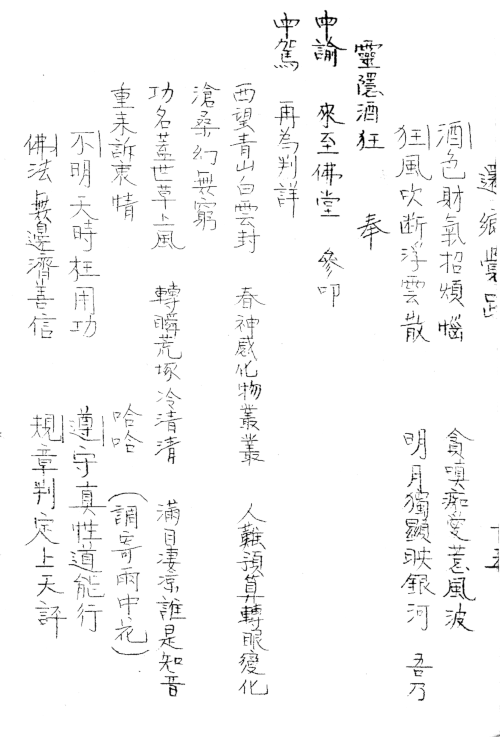 還鄉覺路
酒色財氣招煩惱 貪嗔痴愛惹風波
狂風吹断浮雲散 明月獨顯映銀河 吾乃
靈隱酒狂 奉
申諭 來至佛堂 參叩
申駕 再為判詳
西望青山白雲封 春神感化物叢叢 人難預算轉眼變化
滄桑幻無窮
功名蓋世草上風 轉瞬荒塚冷清清 滿目淒涼誰是知音
重来訴衷情 哈哈 (調寄雨中花)
不明天時枉用功 遵守真性道能行
佛法無邊濟善信 規章判定上天評